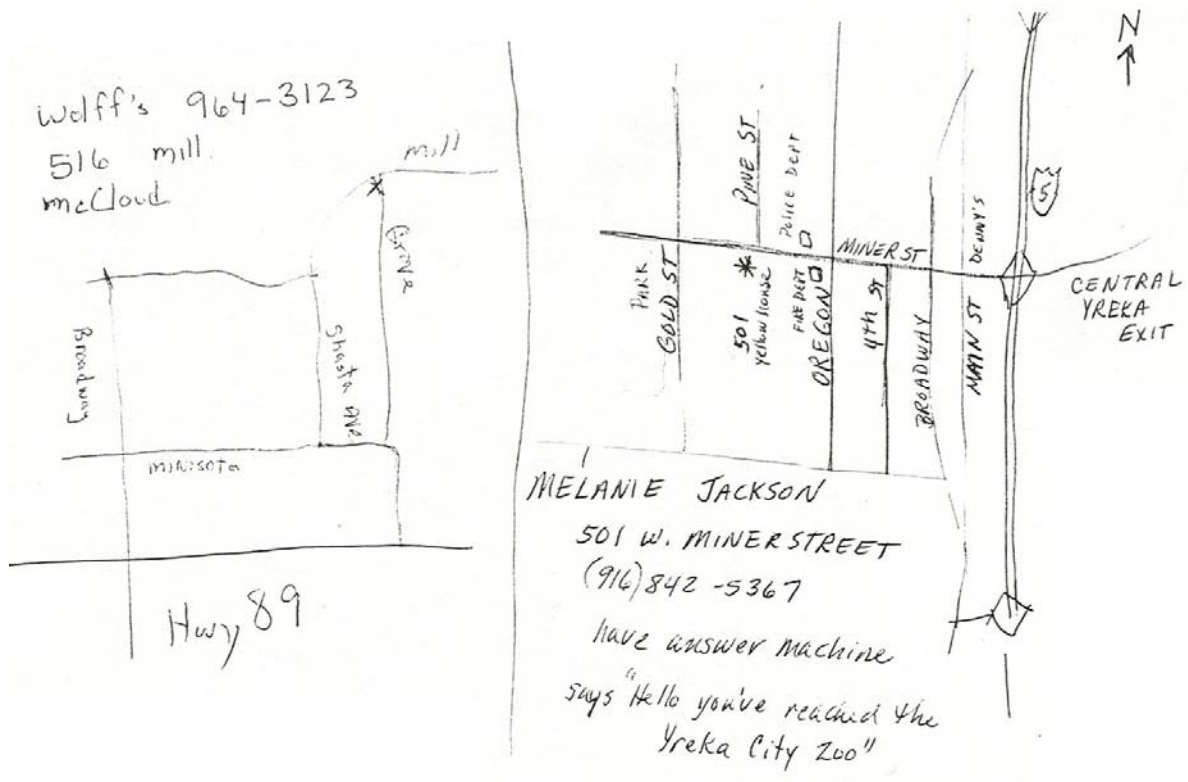 Wolff's 964-3123
516 mill
mcCloud
mill
Grove
Broadway
Shasta Ave
minisota
Hwy 89
N
5
PINE ST
POLICE DEPT
MINER ST
DENNY'S
PARK
GOLD ST
501
yellow house
FIRE DEPT
OREGON
4th ST
BROADWAY
MAIN ST
CENTRAL
YREKA
EXIT
MELANIE JACKSON
501 W. MINER STREET
(916) 842-5367
have answer machine
says "Hello you've reached the
Yreka City Zoo"